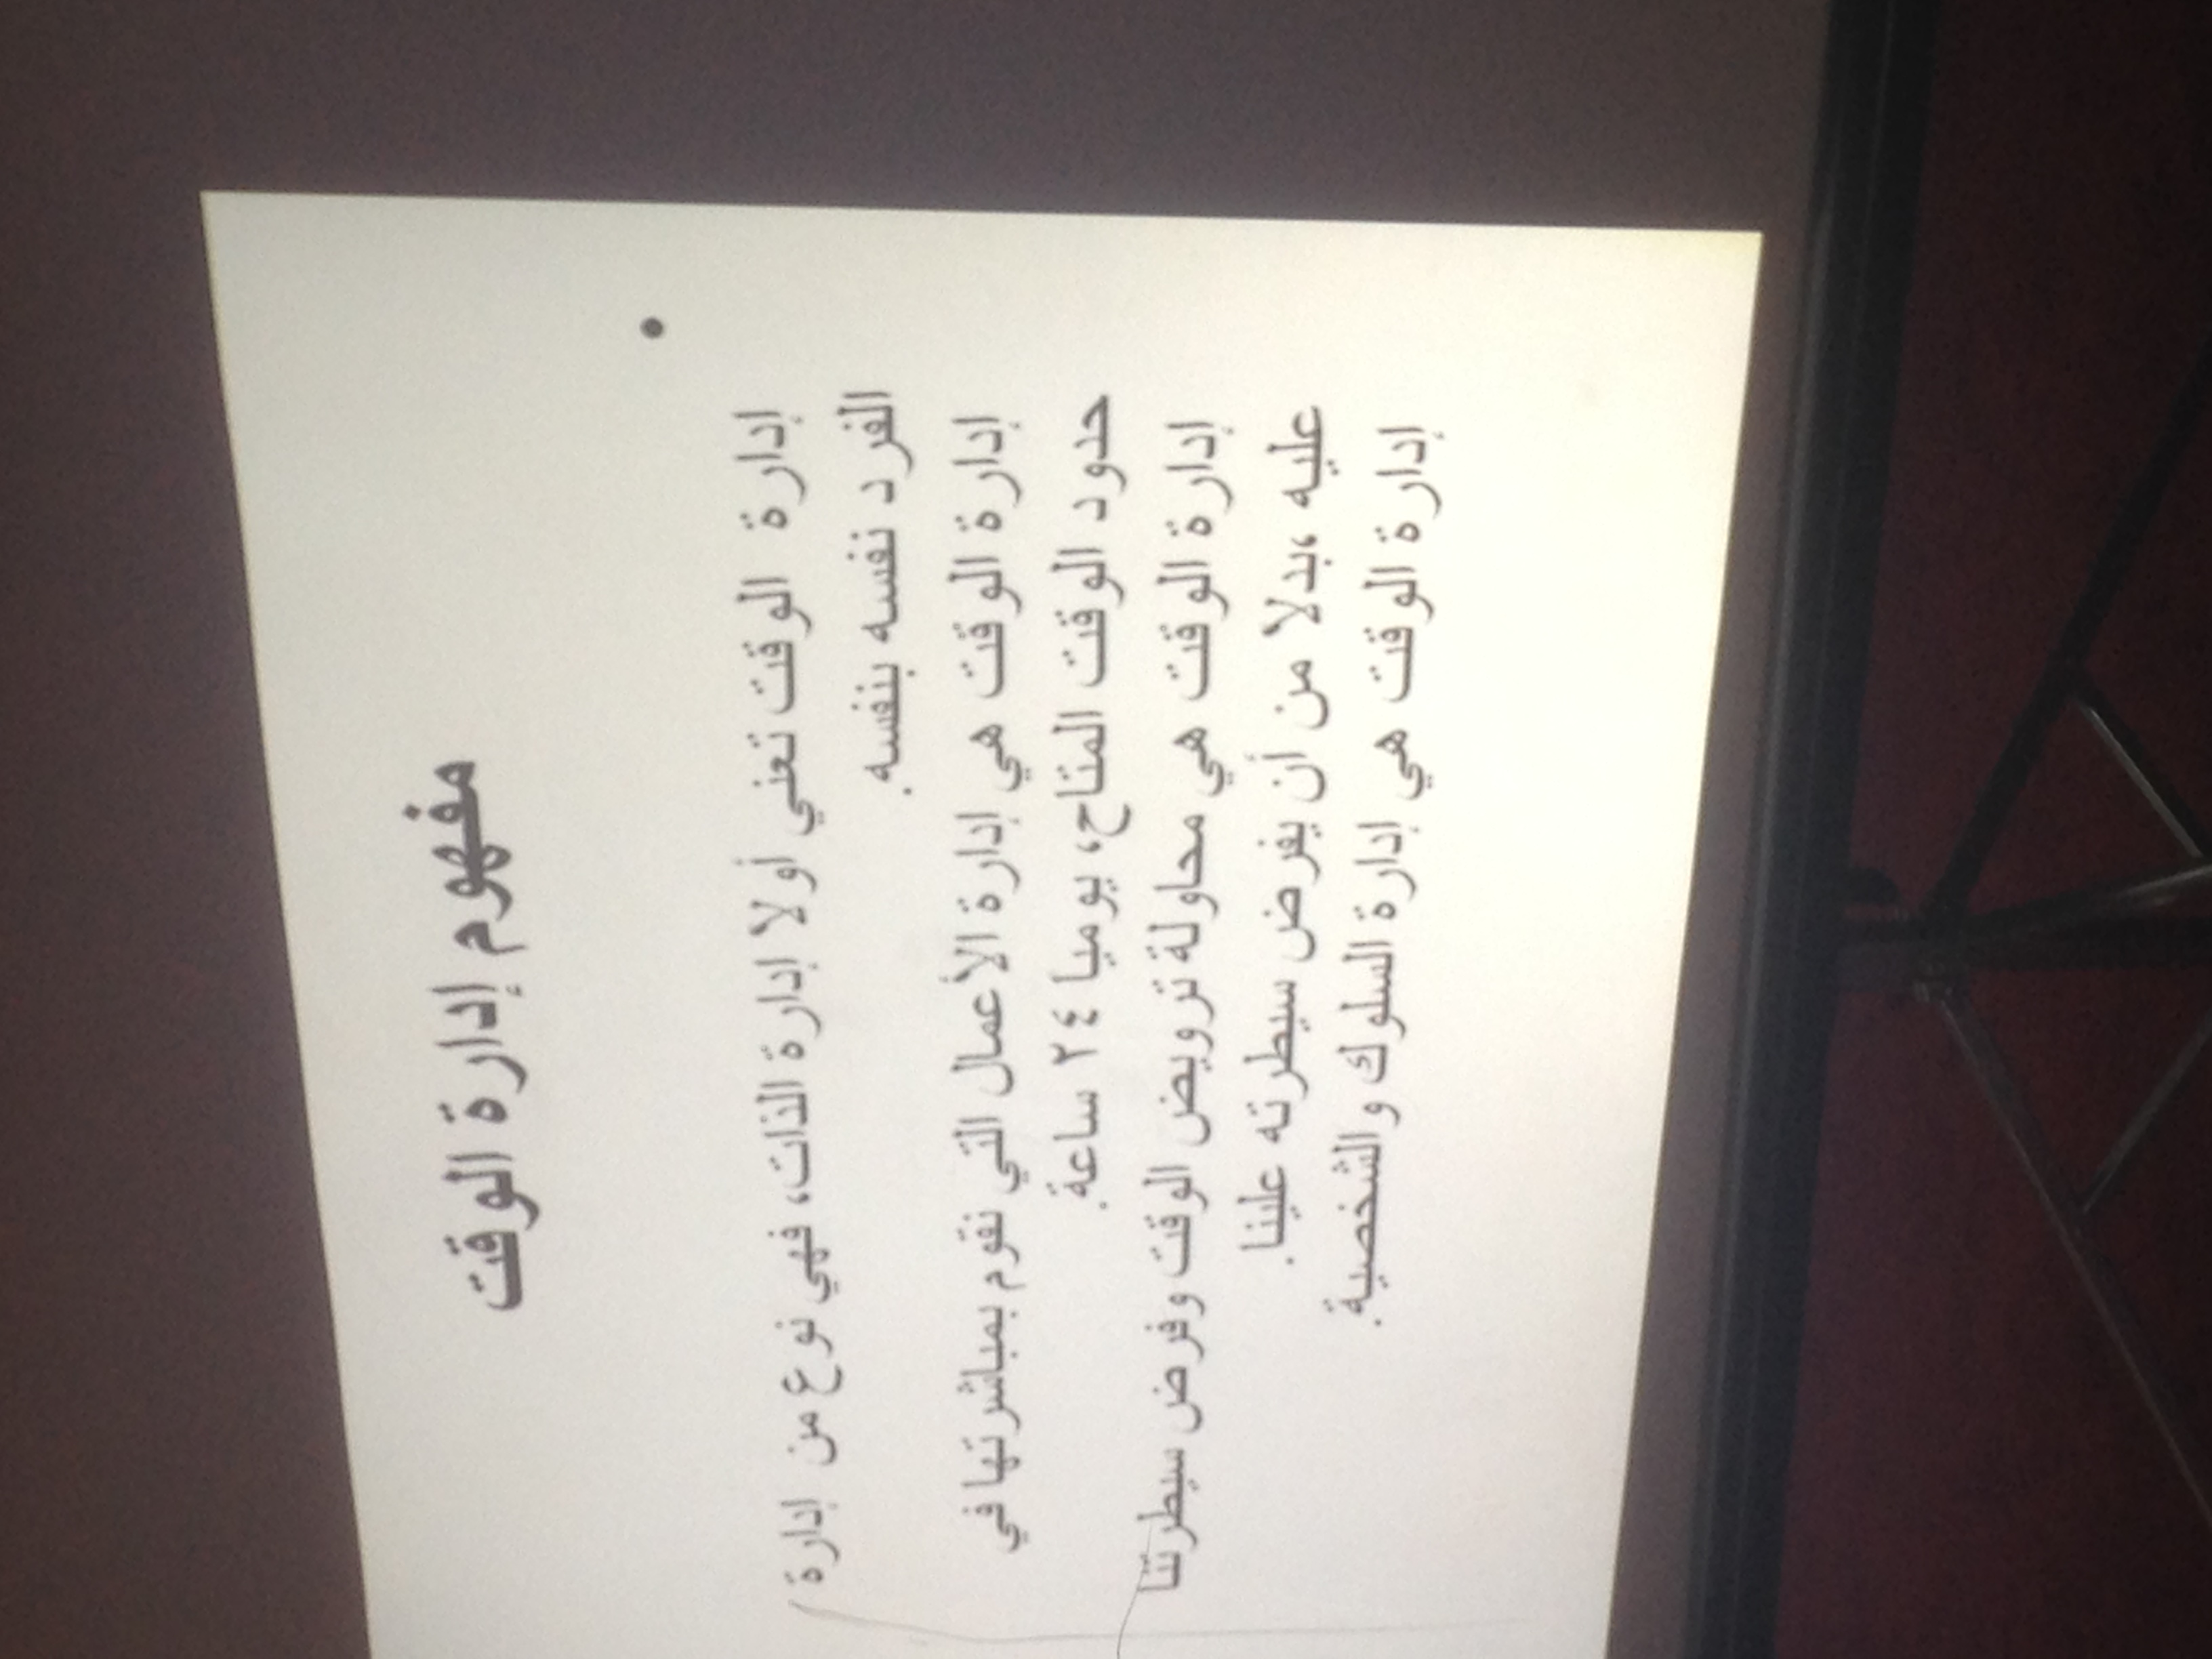 مفهوم إدارة الوقت
•
إدارة الوقت تعني أولا إدارة الذات، فهي نوع من إدارة
الفرد نفسه بنفسه.
إدارة الوقت هي إدارة الأعمال التي نقوم بمباشرتها في
حدود الوقت المتاح، يوميا ٢٤ ساعة.
إدارة الوقت هي محاولة ترويض الوقت وفرض سيطرتنا
عليه ،بدلا من أن يفرض سيطرته علينا.
إدارة الوقت هي إدارة السلوك والشخصية.